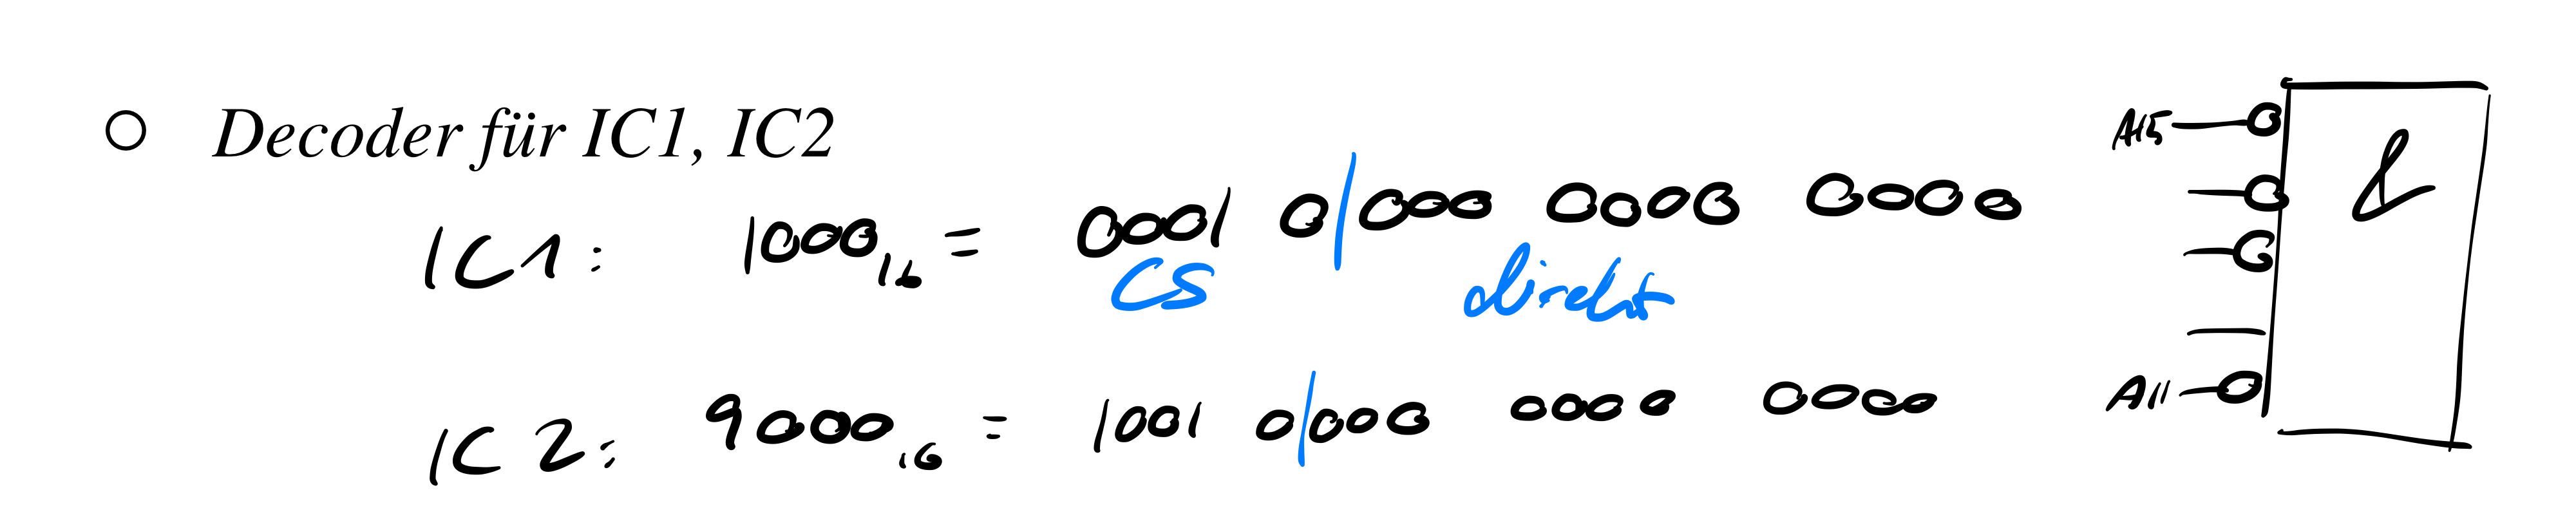 ○ Decoder für IC1, IC2
IC1: 1000₁₆ = 0001 0|000 0000 0000
CS direkt
IC2: 9000₁₆ = 1001 0|000 0000 0000
A15
&
A11